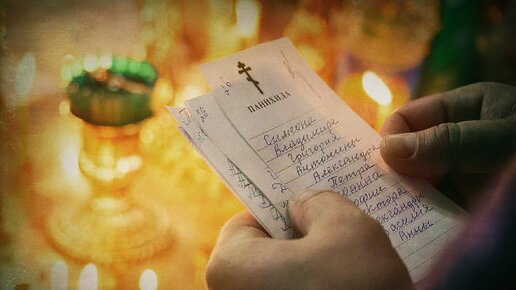 Панихида
Симеона
Владимира
Григория
Антонины
Александра
Петра
Александра
Василия
Анны